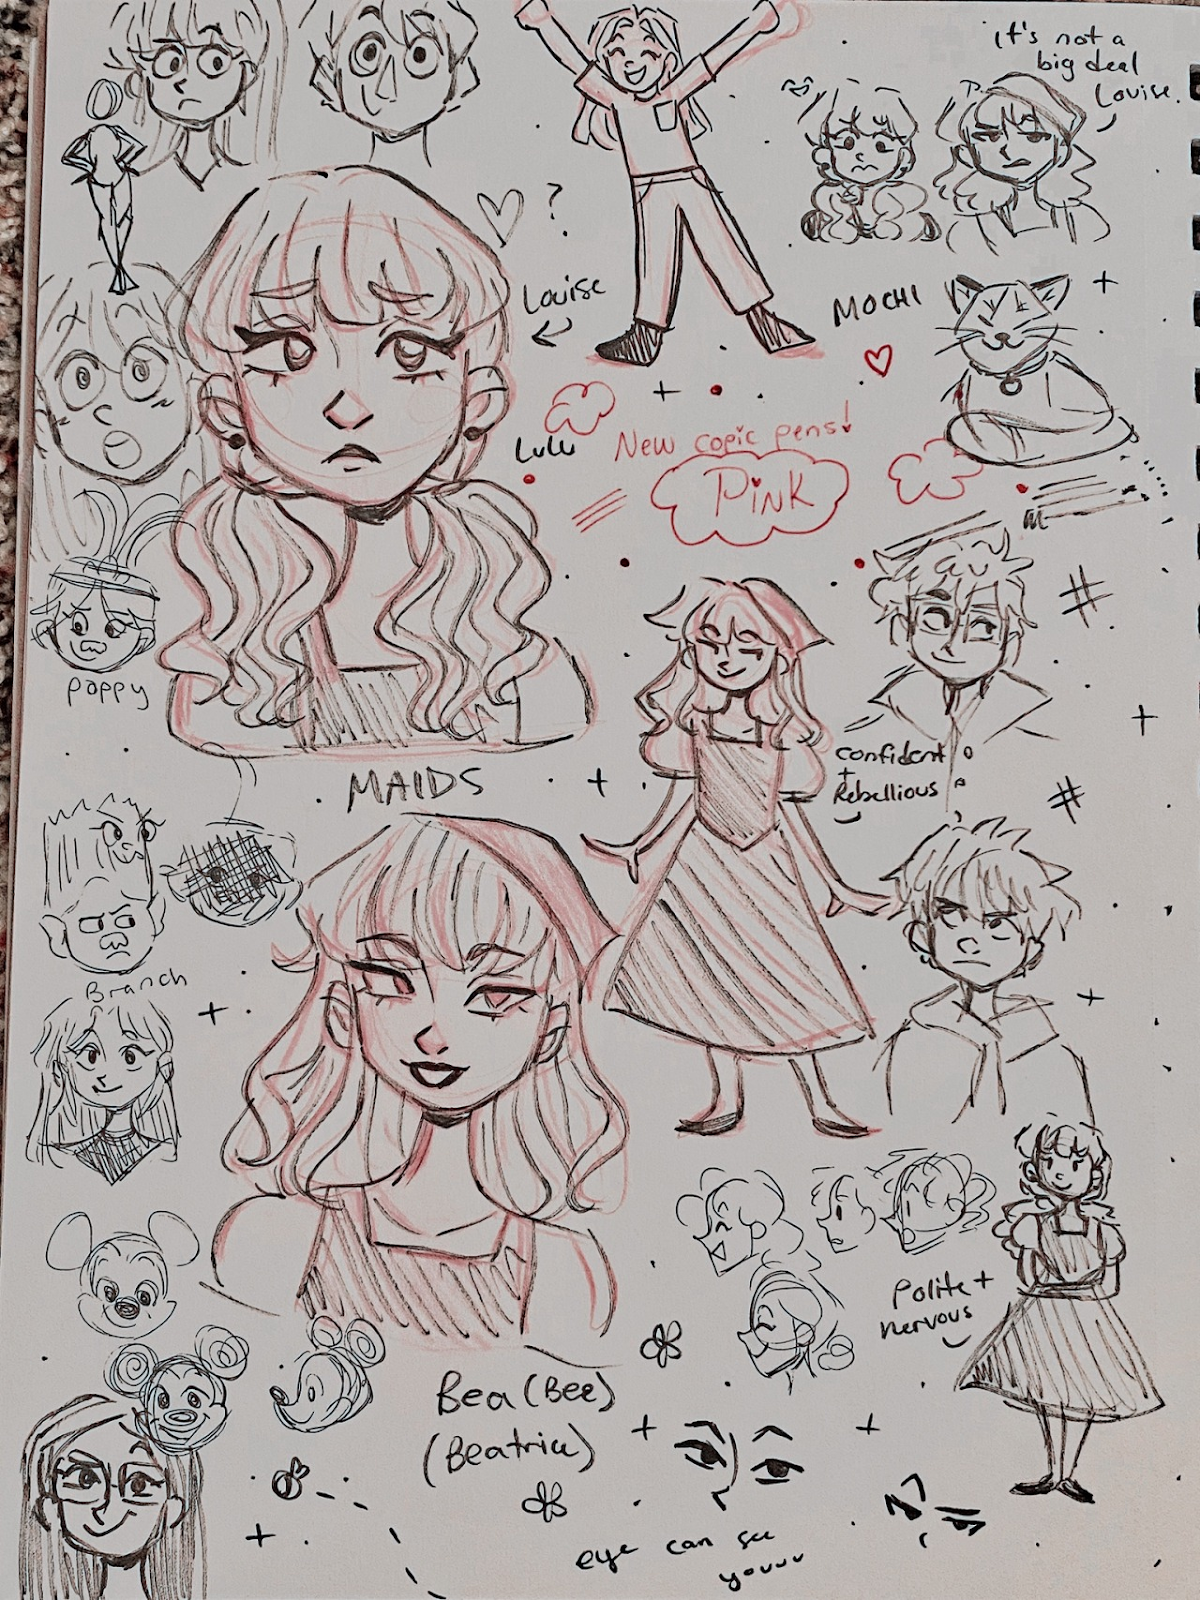 it's not a
big deal
Louise.
?
Louise
MOCHI
Lulu
New copic pens!
Pink
poppy
confident
+
Rebellious
MAIDS
Branch
Polite +
nervous
Bea (Bee)
(Beatrice)
eye can see
youuu